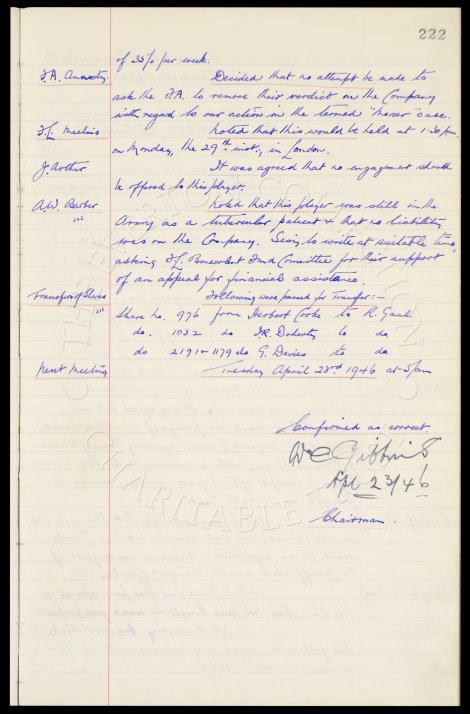 222
of 35/- per week.
F.A. Amnesty. Decided that no attempt be made to
ask the F.A. to remove their verdict on the Company
with regard to our action in the termed " case.
F.L. Meeting Noted that this would be held at 1.30 p.m.
on Monday, the 29th inst., in London.
J. Arthur It was agreed that no engagement should
be offered to this player.
A.W. Barber Noted that this player was still in the
222
Army as a tubercular patient & that no liability
was on the Company. Secy. to write at suitable time,
asking F.L. Benevolent Fund Committee for their support
of an appeal for financial assistance.
Transfers of Shares Following were passed for Transfer:-
222
Share No. 976 from Herbert Cooke to R. Gaul.
do. 1032 do J.R. Doherty to do
do 2191 - 1179 do G. Davies to do
Next Meeting Tuesday April 23rd 1946 at 5 pm
Confirmed as correct.
WC Gibbins
Apl 23/46
Chairman.
THE EVERTON COLLECTION
CHARITABLE